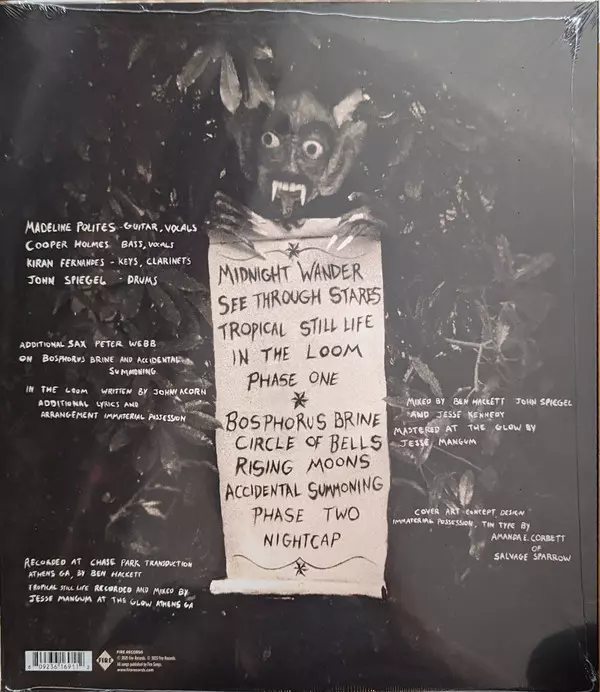 MADELINE POLITES - GUITAR, VOCALS
COOPER HOLMES BASS, VOCALS
KIRAN FERNANDES - KEYS, CLARINETS
JOHN SPIEGEL - DRUMS
ADDITIONAL SAX PETER WEBB
ON BOSPHORUS BRINE AND ACCIDENTAL
SUMMONING
IN THE LOOM WRITTEN BY JOHNY ACORN
ADDITIONAL LYRICS AND
ARRANGEMENT IMMATERIAL POSSESSION
MIDNIGHT WANDER
SEE THROUGH STARES
TROPICAL STILL LIFE
IN THE LOOM
PHASE ONE
BOSPHORUS BRINE
CIRCLE OF BELLS
RISING MOONS
ACCIDENTAL SUMMONING
PHASE TWO
NIGHTCAP
MIXED BY BEN HACKETT JOHN SPIEGEL
AND JESSE KENNEDY
MASTERED AT THE GLOW BY
JESSE MANGUM
COVER ART CONCEPT DESIGN
IMMATERIAL POSSESSION, TIN TYPE BY
AMANDA E. CORBETT
OF
SALVAGE SPARROW
RECORDED AT CHASE PARK TRANSDUCTION
ATHENS GA, BY BEN HACKETT
TROPICAL STILL LIFE RECORDED AND MIXED BY
JESSE MANGUM AT THE GLOW ATHENS GA
FIRE
FIRE RECORDS
All songs published by Fire Songs.
www.firerecords.com